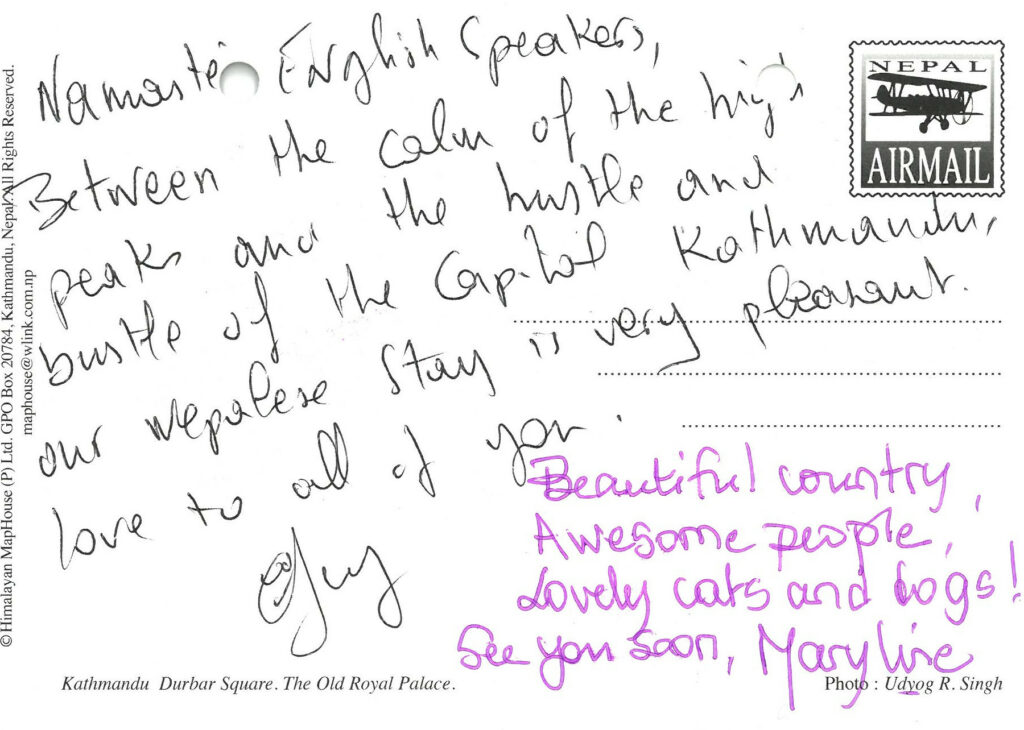 Namasté English Speakers,
Between the calm of the high
peaks and the hustle and
bustle of the Capital Kathmandu,
our nepalese stay is very pleasant.
love to all of you.
Guy
Beautiful country,
Awesome people,
Lovely cats and dogs!
See you soon, Maryline
NEPAL
AIRMAIL
© Himalayan MapHouse (P) Ltd. GPO Box 20784, Kathmandu, Nepal. All Rights Reserved.
maphouse@wlink.com.np
Kathmandu Durbar Square. The Old Royal Palace.
Photo : Udyog R. Singh